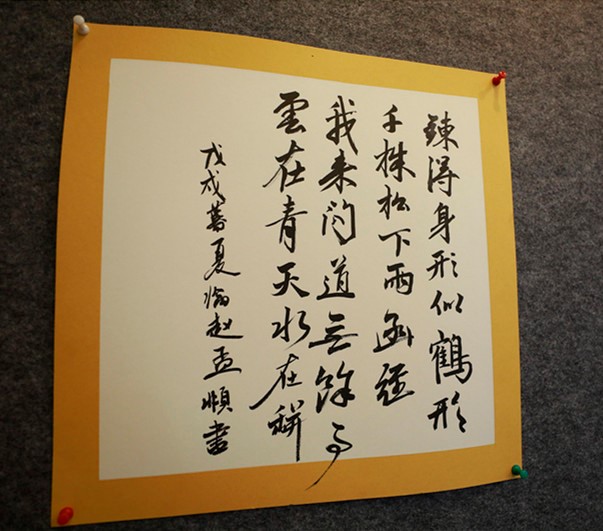 鍊得身形似鶴形
千株松下兩函經
我来问道无餘事
雲在青天水在缾
戊戌暮夏临赵孟頫書